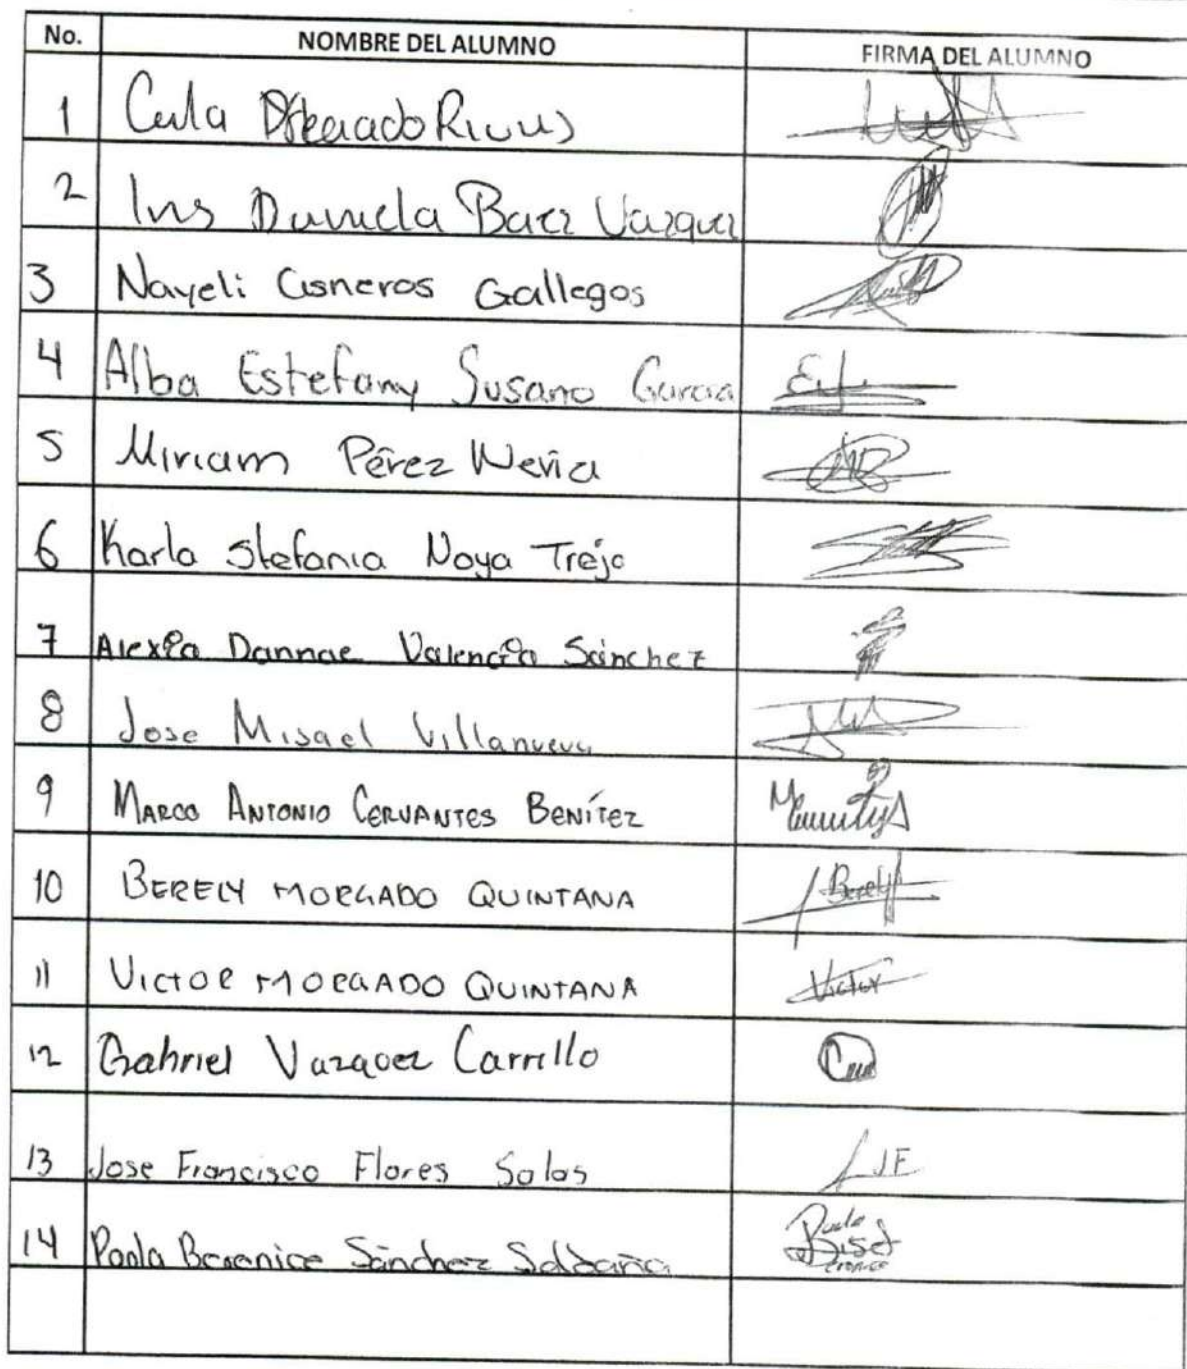 No. NOMBRE DEL ALUMNO FIRMA DEL ALUMNO
1 Rivus
2 Daniela Baez Vazquez
3 Nayeli Cisneros Gallegos
4 Alba Estefany Susano Garcia
5 Miriam Pérez Neria
6 Karla Stefania Noya Trejo
7 Alexia Dannae Valencia Sánchez
8 Jose Misael Villanueva
9 MARCO ANTONIO CERVANTES BENÍTEZ
10 BERELY MORGADO QUINTANA Berely
11 VICTOR MORGADO QUINTANA Victor
12 Gabriel Vazquez Carrillo
13 Jose Francisco Flores Salas JF
14 Paola Berenice Sánchez Saldaña